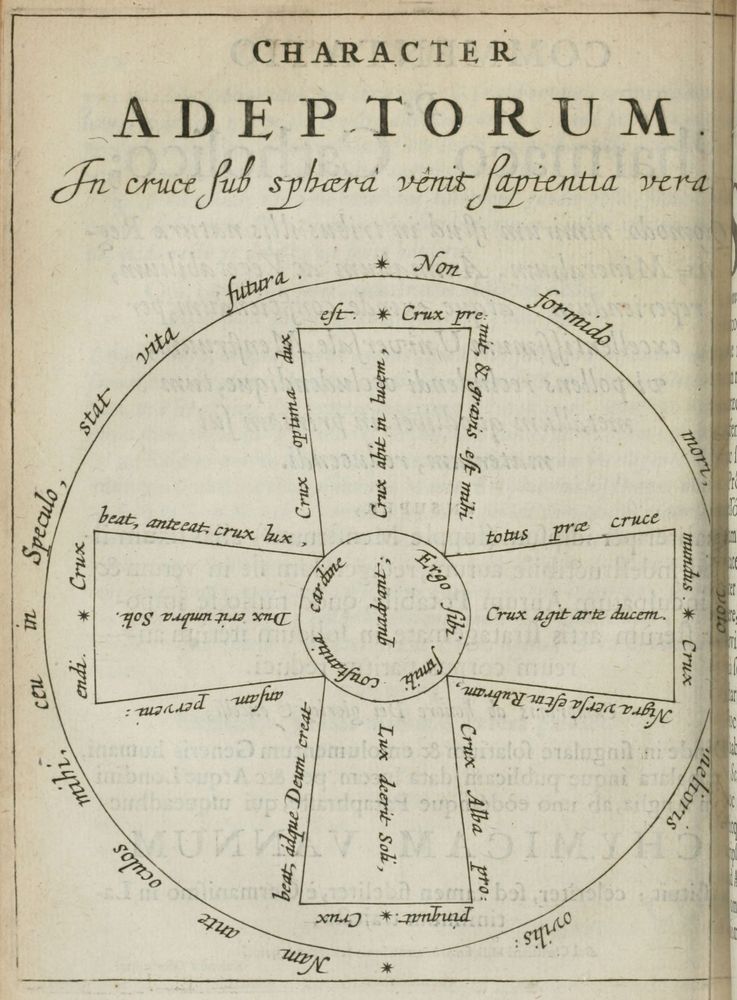 CHARACTER
ADEPTORUM
In cruce sub sphærâ vênit sapientia vera
Non formido mori, volo melioris ovilis:
Nam ante oculos mihi, ceu in Speculo, stat vita futura.
Crux pre:
mit, & grauis est mihi
totus præ cruce
mundus: Crux
Nigra versa est in Rubram,
Crux Alba pro:
pinquat: Crux
beat, ádque Deum creat
ansam perveni:
endi. Crux
beat, anteeat, crux lux,
Crux optima dux
est.
Crux abit in lucem,
Crux agit arte ducem.
Lux deerit Soli,
Dux erit umbra Soli.
Ergo sibi simili constantia cardine
quadrant: